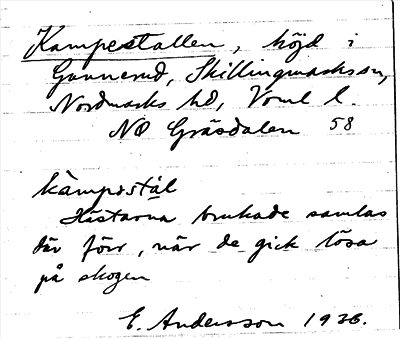 Kampestallen, höjd i
Gunnerud, Skillingmarks sn,
Nordmarks hd, Vrml l.
NO Gräsdalen 58
kàmpestál
Hästarna brukade samlas
där förr, när de gick lösa
på skogen
E. Andersson 1936.